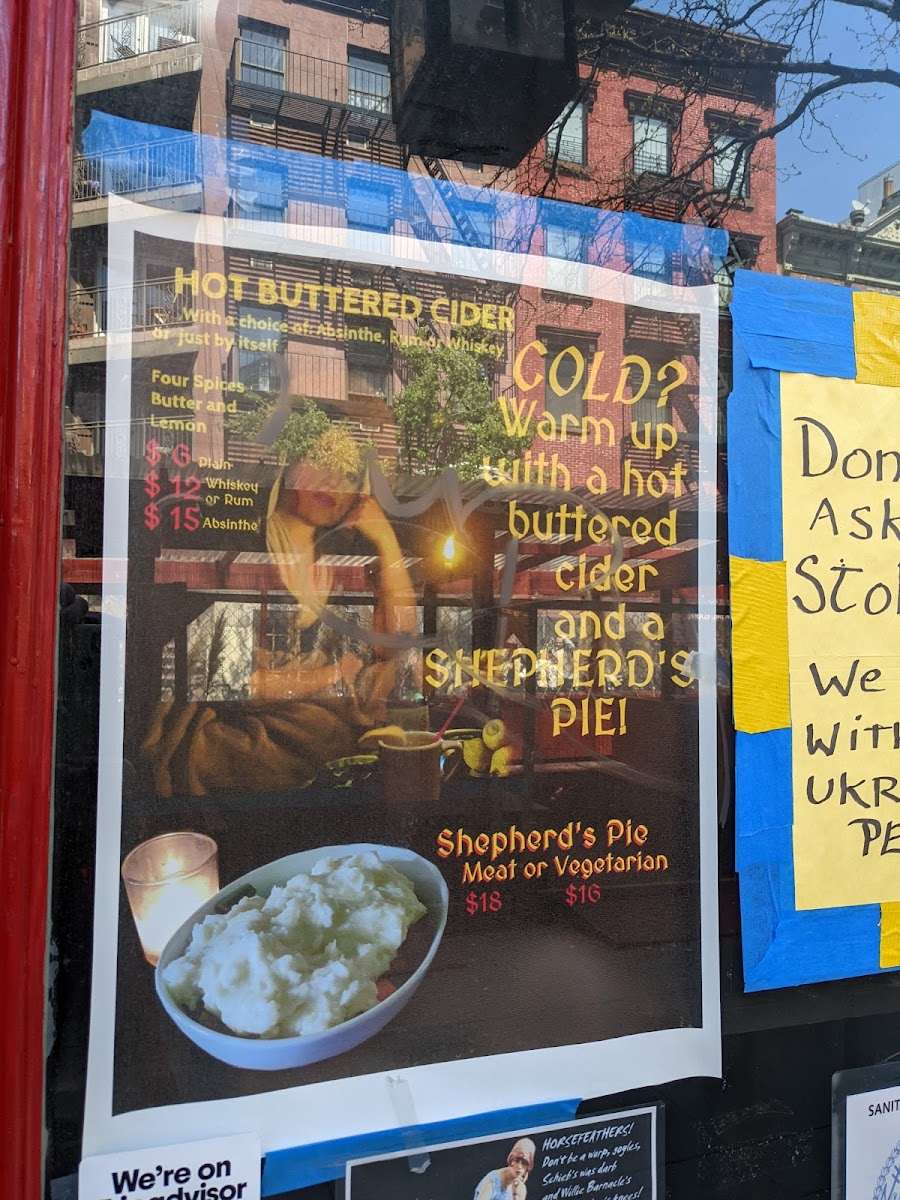 HOT BUTTERED CIDER
With a choice of: Absinthe, Rum or Whiskey
or just by itself
Four Spices
Butter and
Lemon
$ 6 Plain
$ 12 Whiskey
or Rum
$ 15 Absinthe
COLD?
Warm up
with a hot
buttered
cider
and a
SHEPHERD'S
PIE!
Shepherd's Pie
Meat or Vegetarian
$18 $16
Don
Ask
Stol
We
With
UKR
PE
SANIT
We're on
HORSEFEATHERS!
Don't be a wurp, goyles,
Schieb's was darb
and Willie Barnacle's